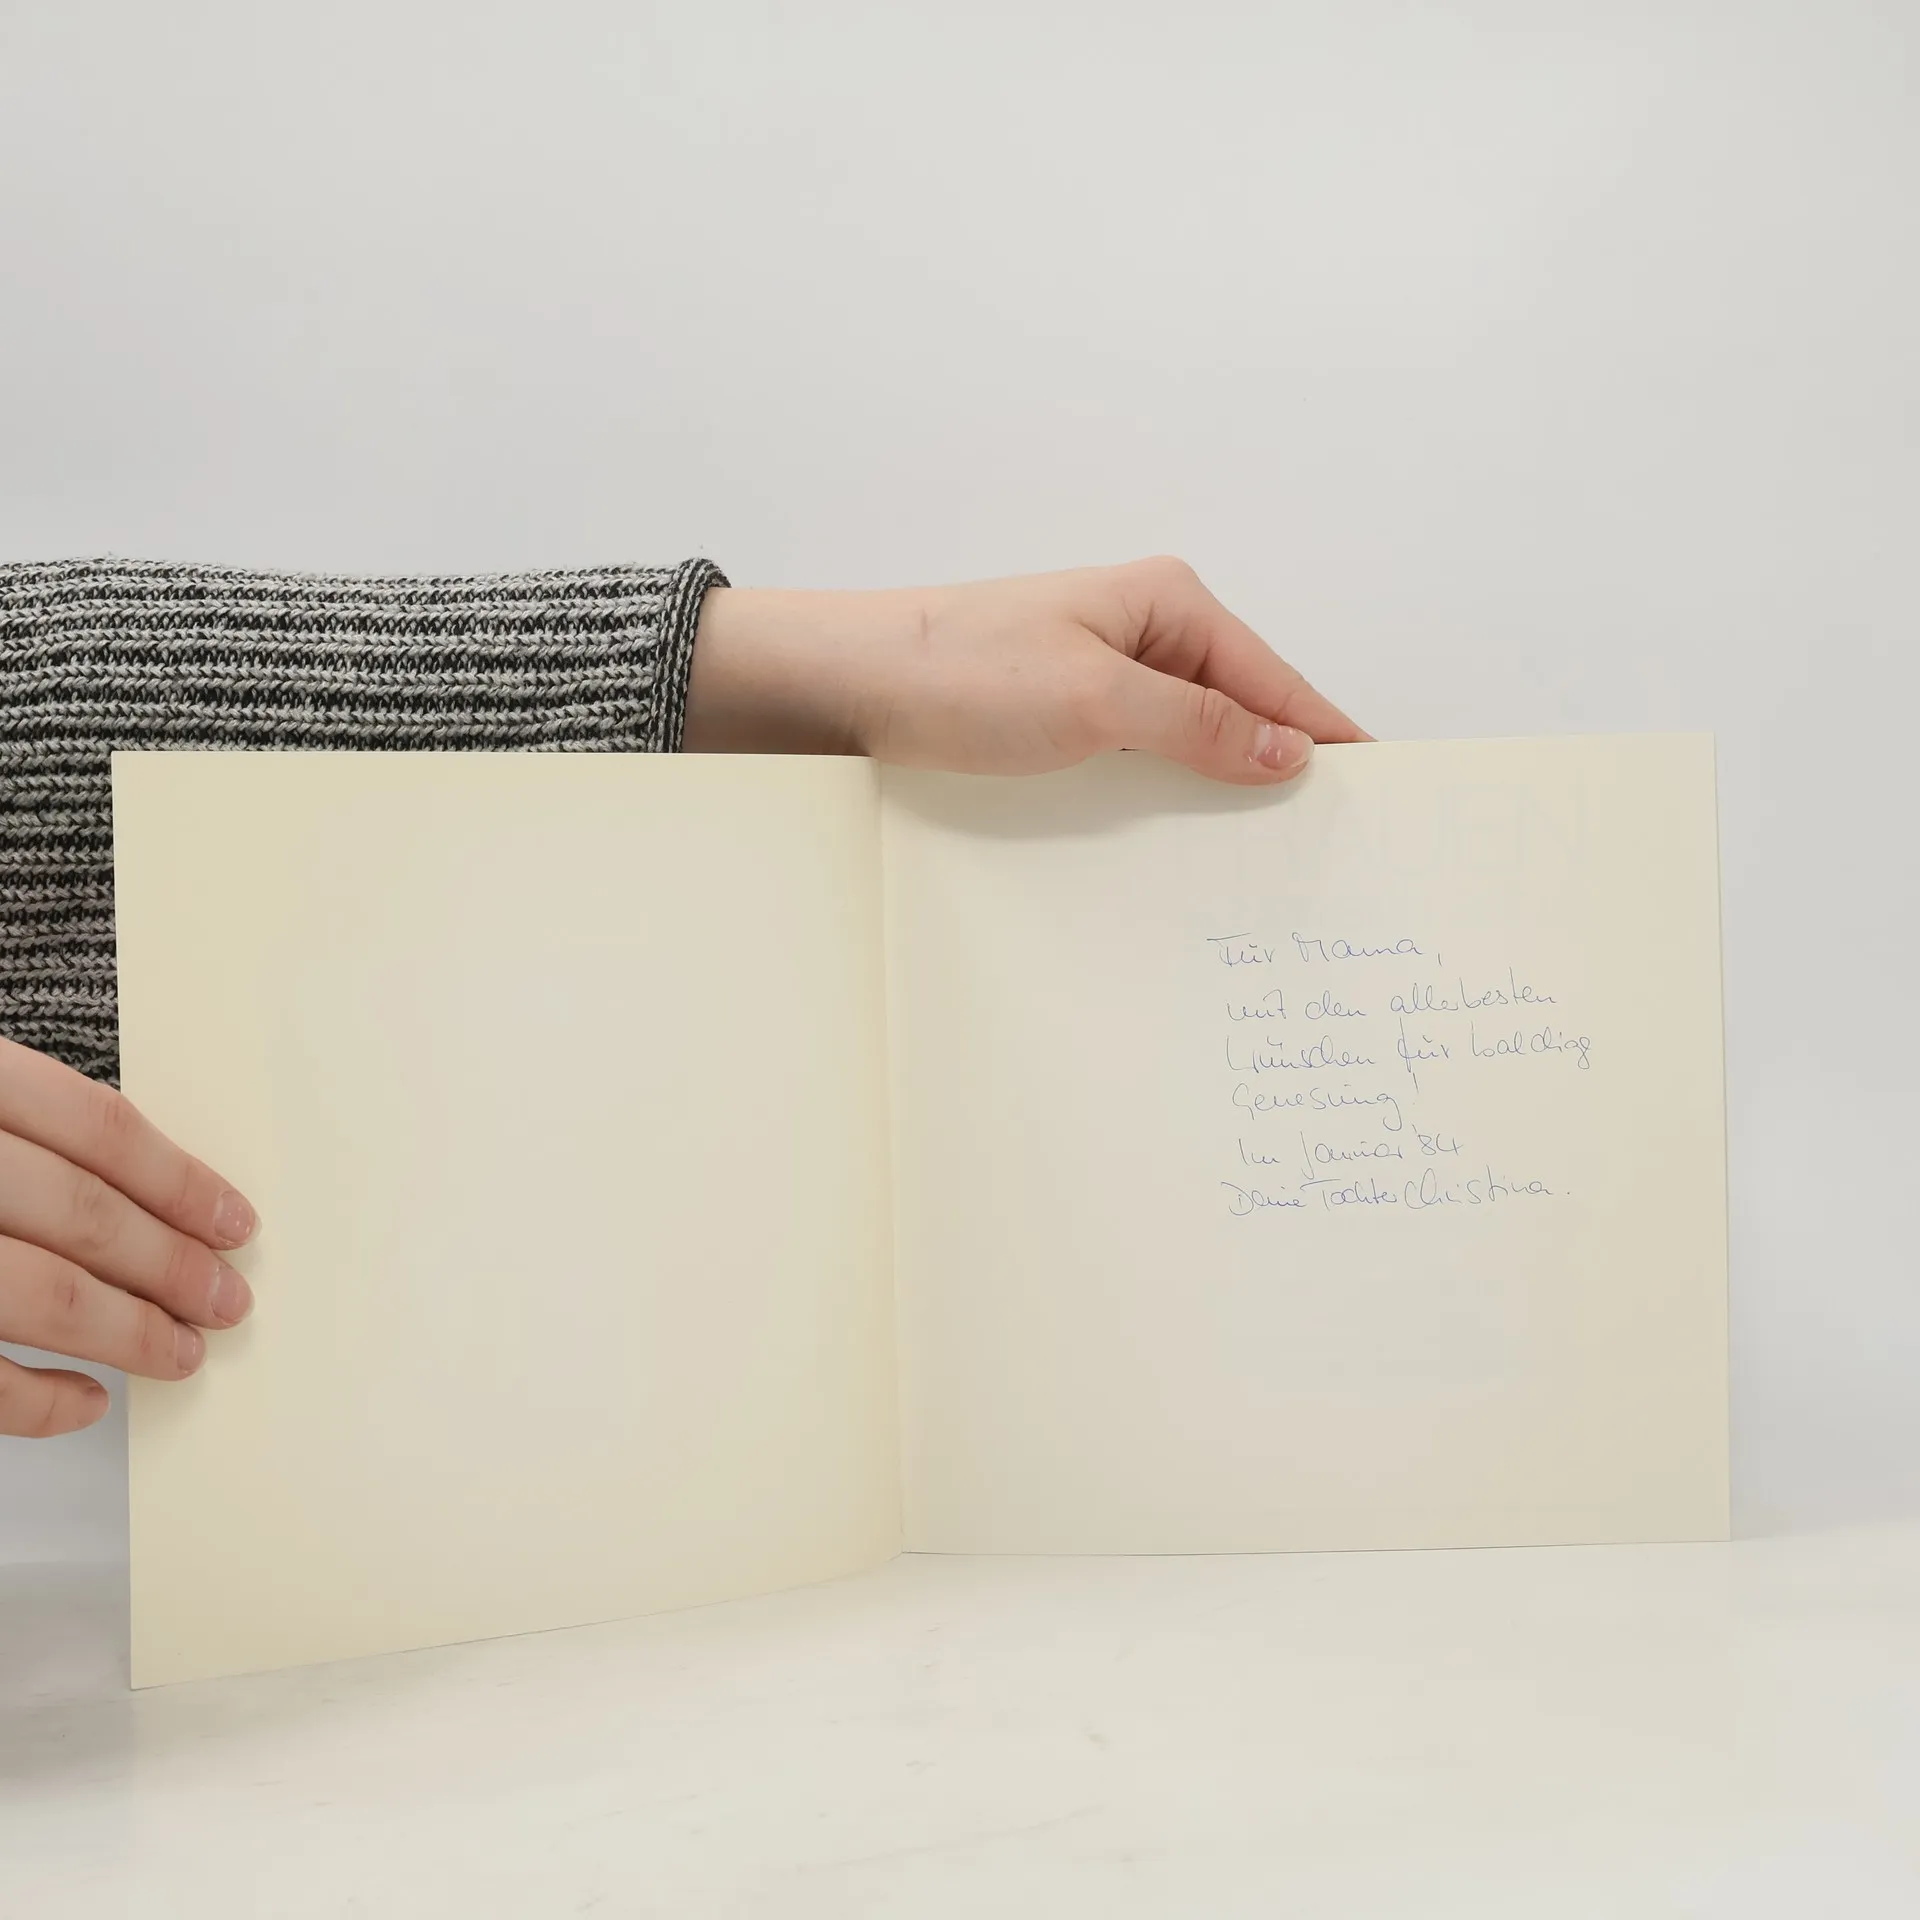 FRAUEN
Für Mama,
mit den allerbesten
Wünschen für baldige
Genesung!
Im Januar '84
Deine Tochter Christina.